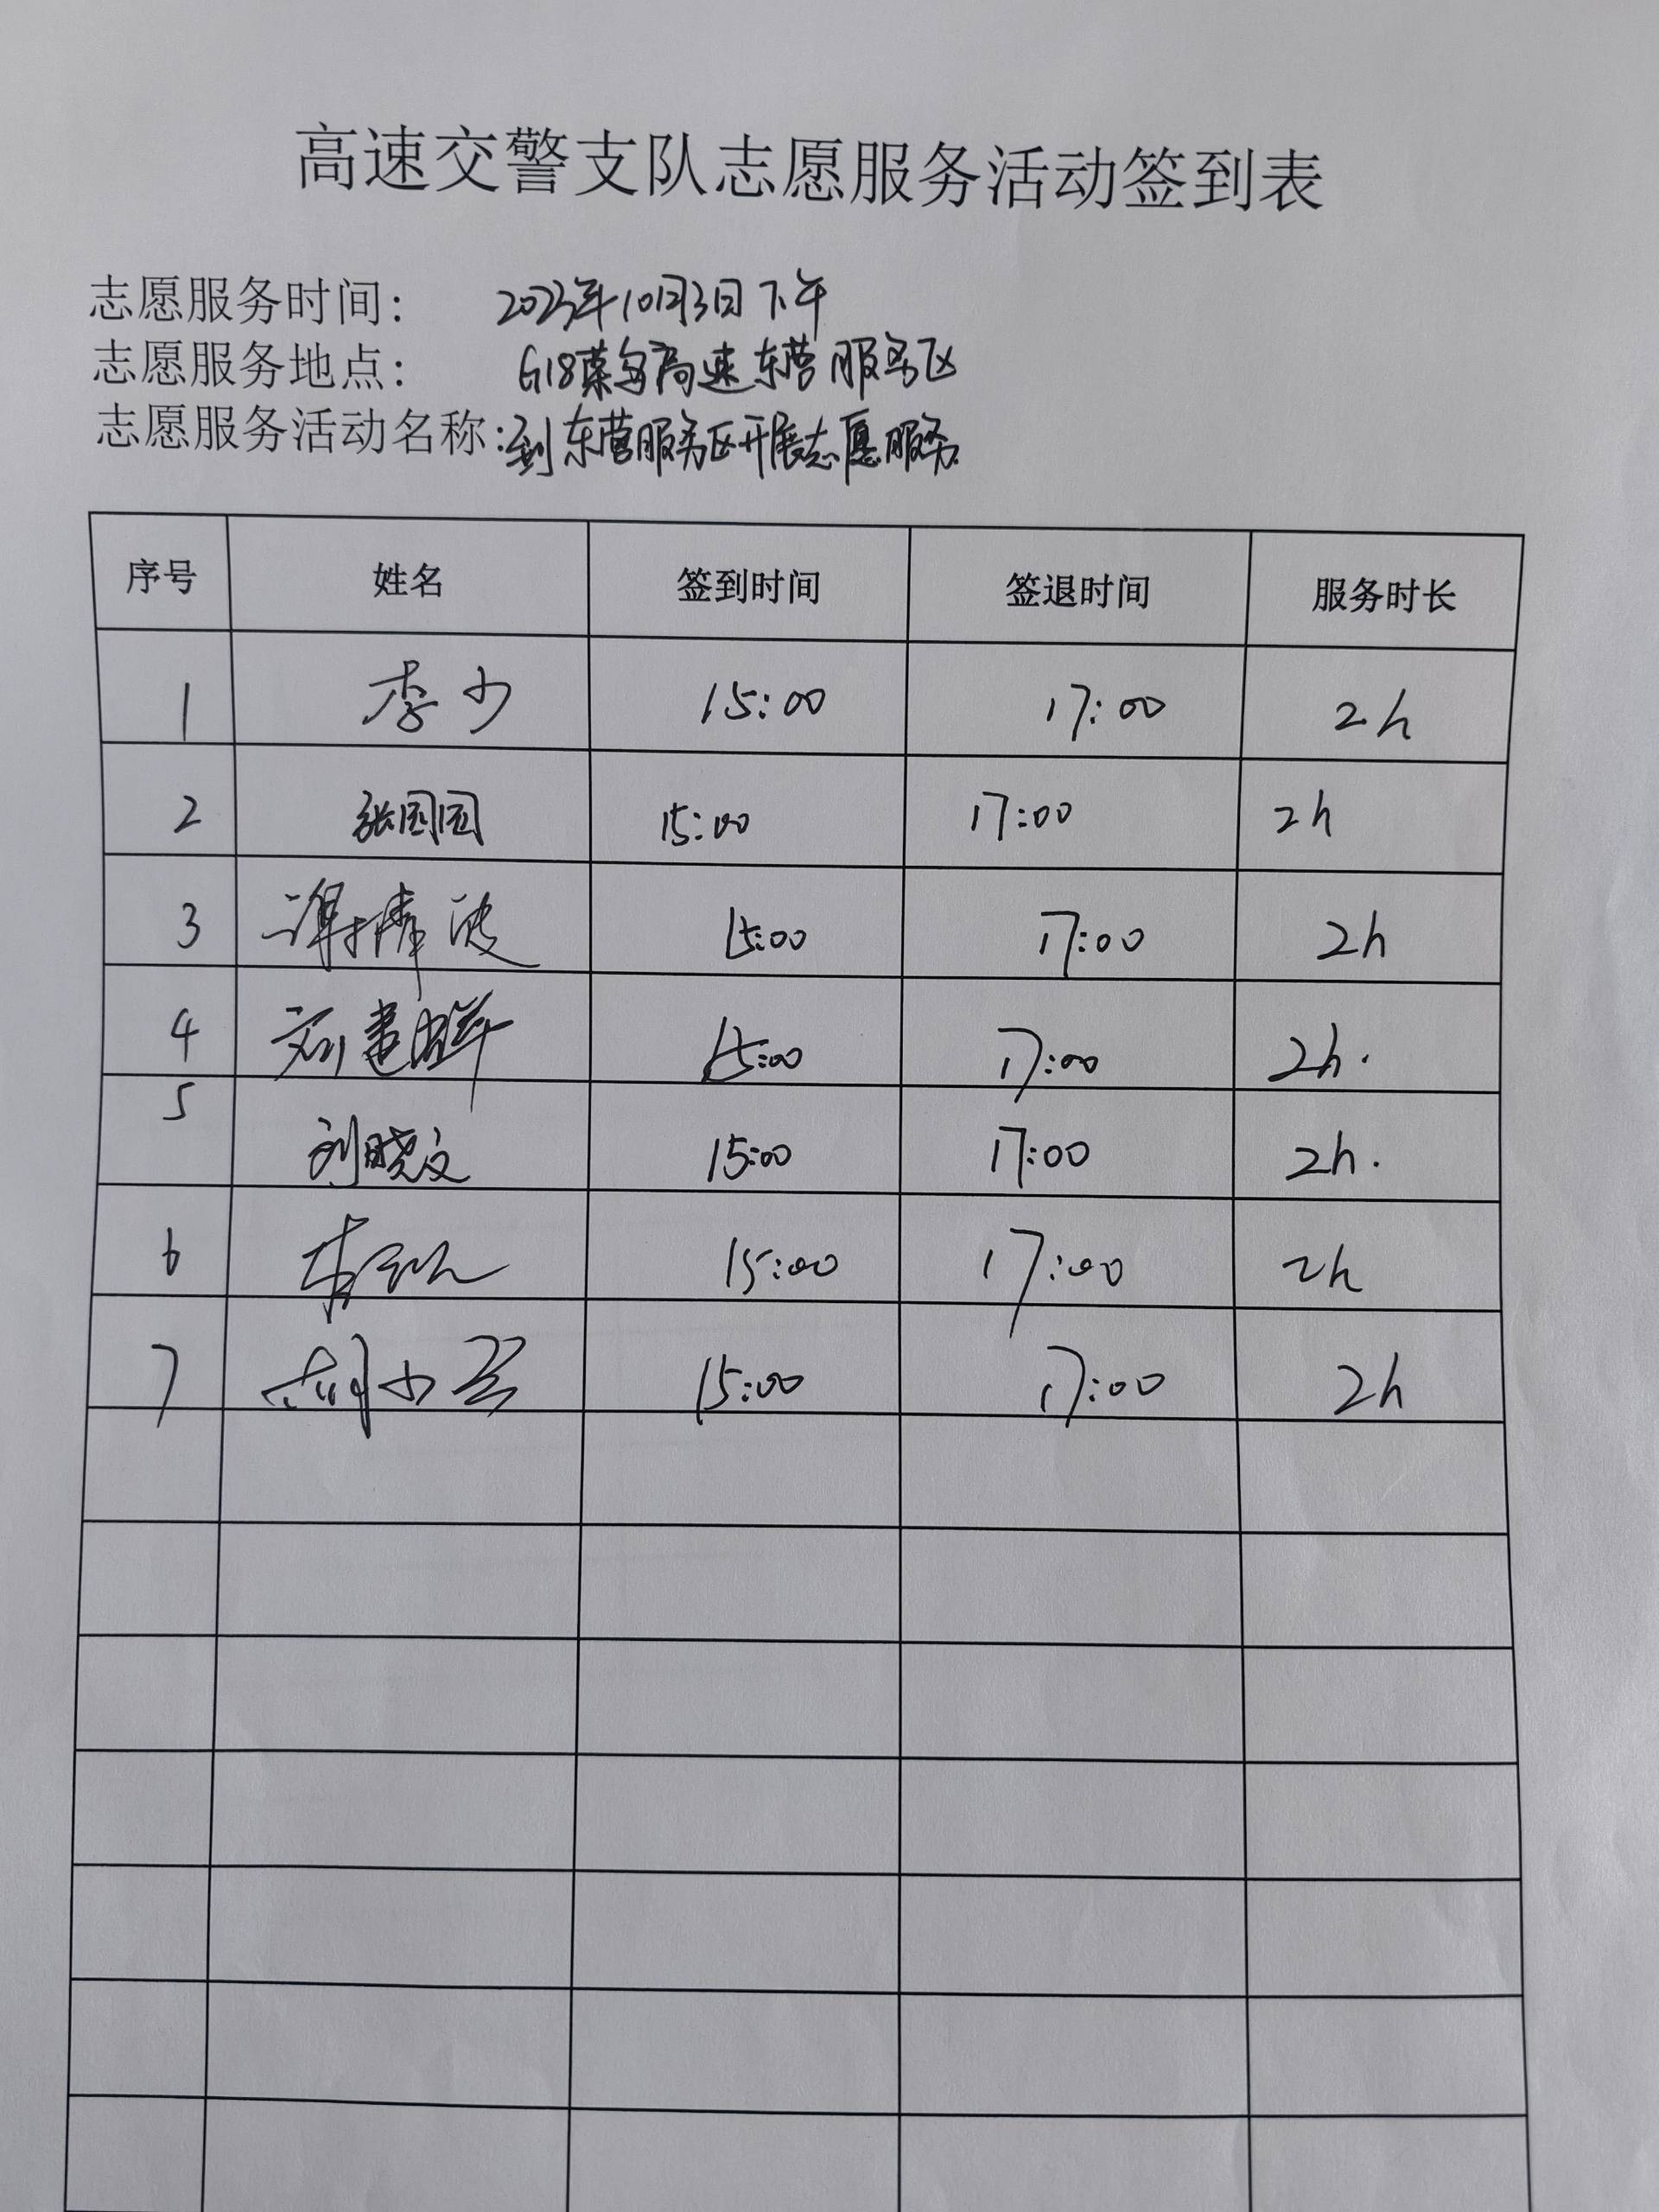 高速交警支队志愿服务活动签到表
志愿服务时间: 2023年10月3日下午
志愿服务地点: G18荣乌高速东营服务区
志愿服务活动名称:到东营服务区开展志愿服务
序号 姓名 签到时间 签退时间 服务时长
1 李少 15:00 17:00 2h
2 张国园 15:00 17:00 2h
3 15:00 17:00 2h
4 15:00 17:00 2h.
5 刘晓文 15:00 17:00 2h.
6 15:00 17:00 2h
7 15:00 17:00 2h